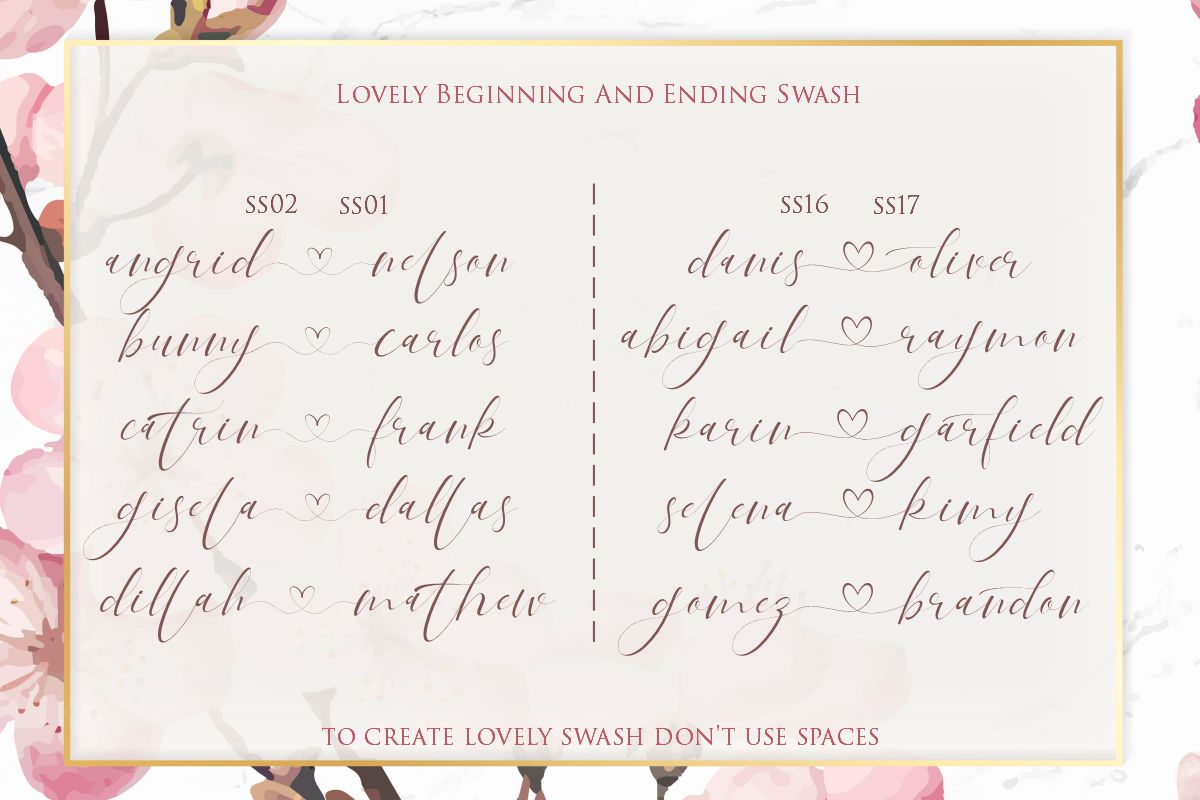 Lovely Beginning And Ending Swash
SS02 SS01
angrid nelson
bunny carlos
catrin frank
gisela dallas
dillah mathew
SS16 SS17
danis oliver
abigail raymon
karin garfield
selena kimy
gomez brandon
TO CREATE LOVELY SWASH DON'T USE SPACES